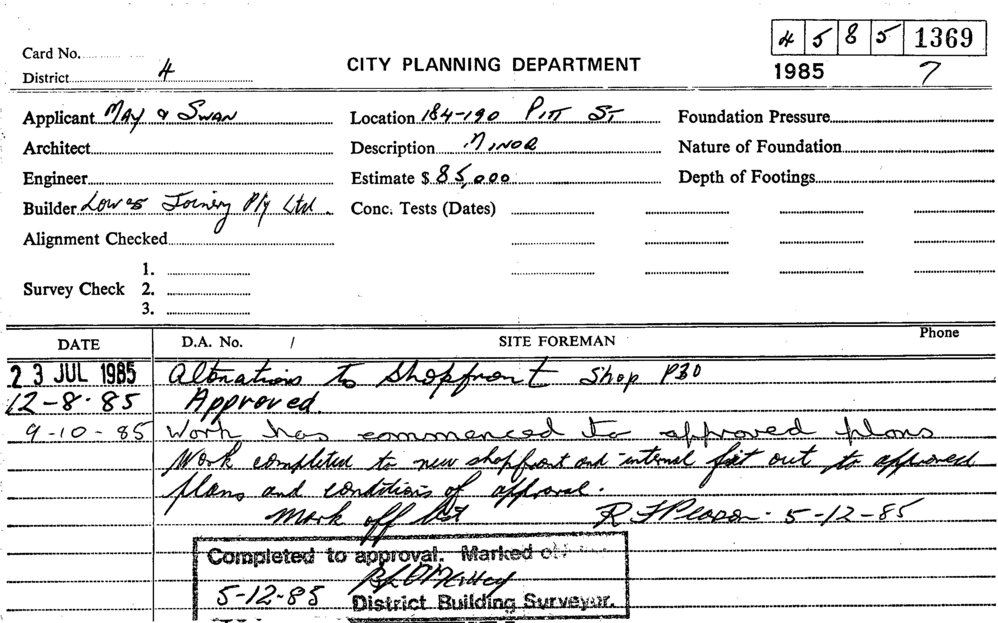 4 5 8 5 1369
Card No.
CITY PLANNING DEPARTMENT
District 4
1985 7
Applicant May & Swan
Location 184-190 Pitt St
Foundation Pressure
Architect
Description Minor
Nature of Foundation
Engineer
Estimate $ 85,000
Depth of Footings
Builder Lowes Joinery P/y Ltd.
Conc. Tests (Dates)
Alignment Checked
1.
Survey Check 2.
3.
DATE D.A. No. / SITE FOREMAN Phone
23 JUL 1985 Alterations to Shopfront Shop P30
12-8-85 Approved.
9-10-85 Work has commenced to approved plans
Work completed to new shopfront and internal fit out to approved
plans and conditions of approval.
Mark off list R F Pearson 5-12-85
Completed to approval. Marked off
5-12-85
District Building Surveyor.